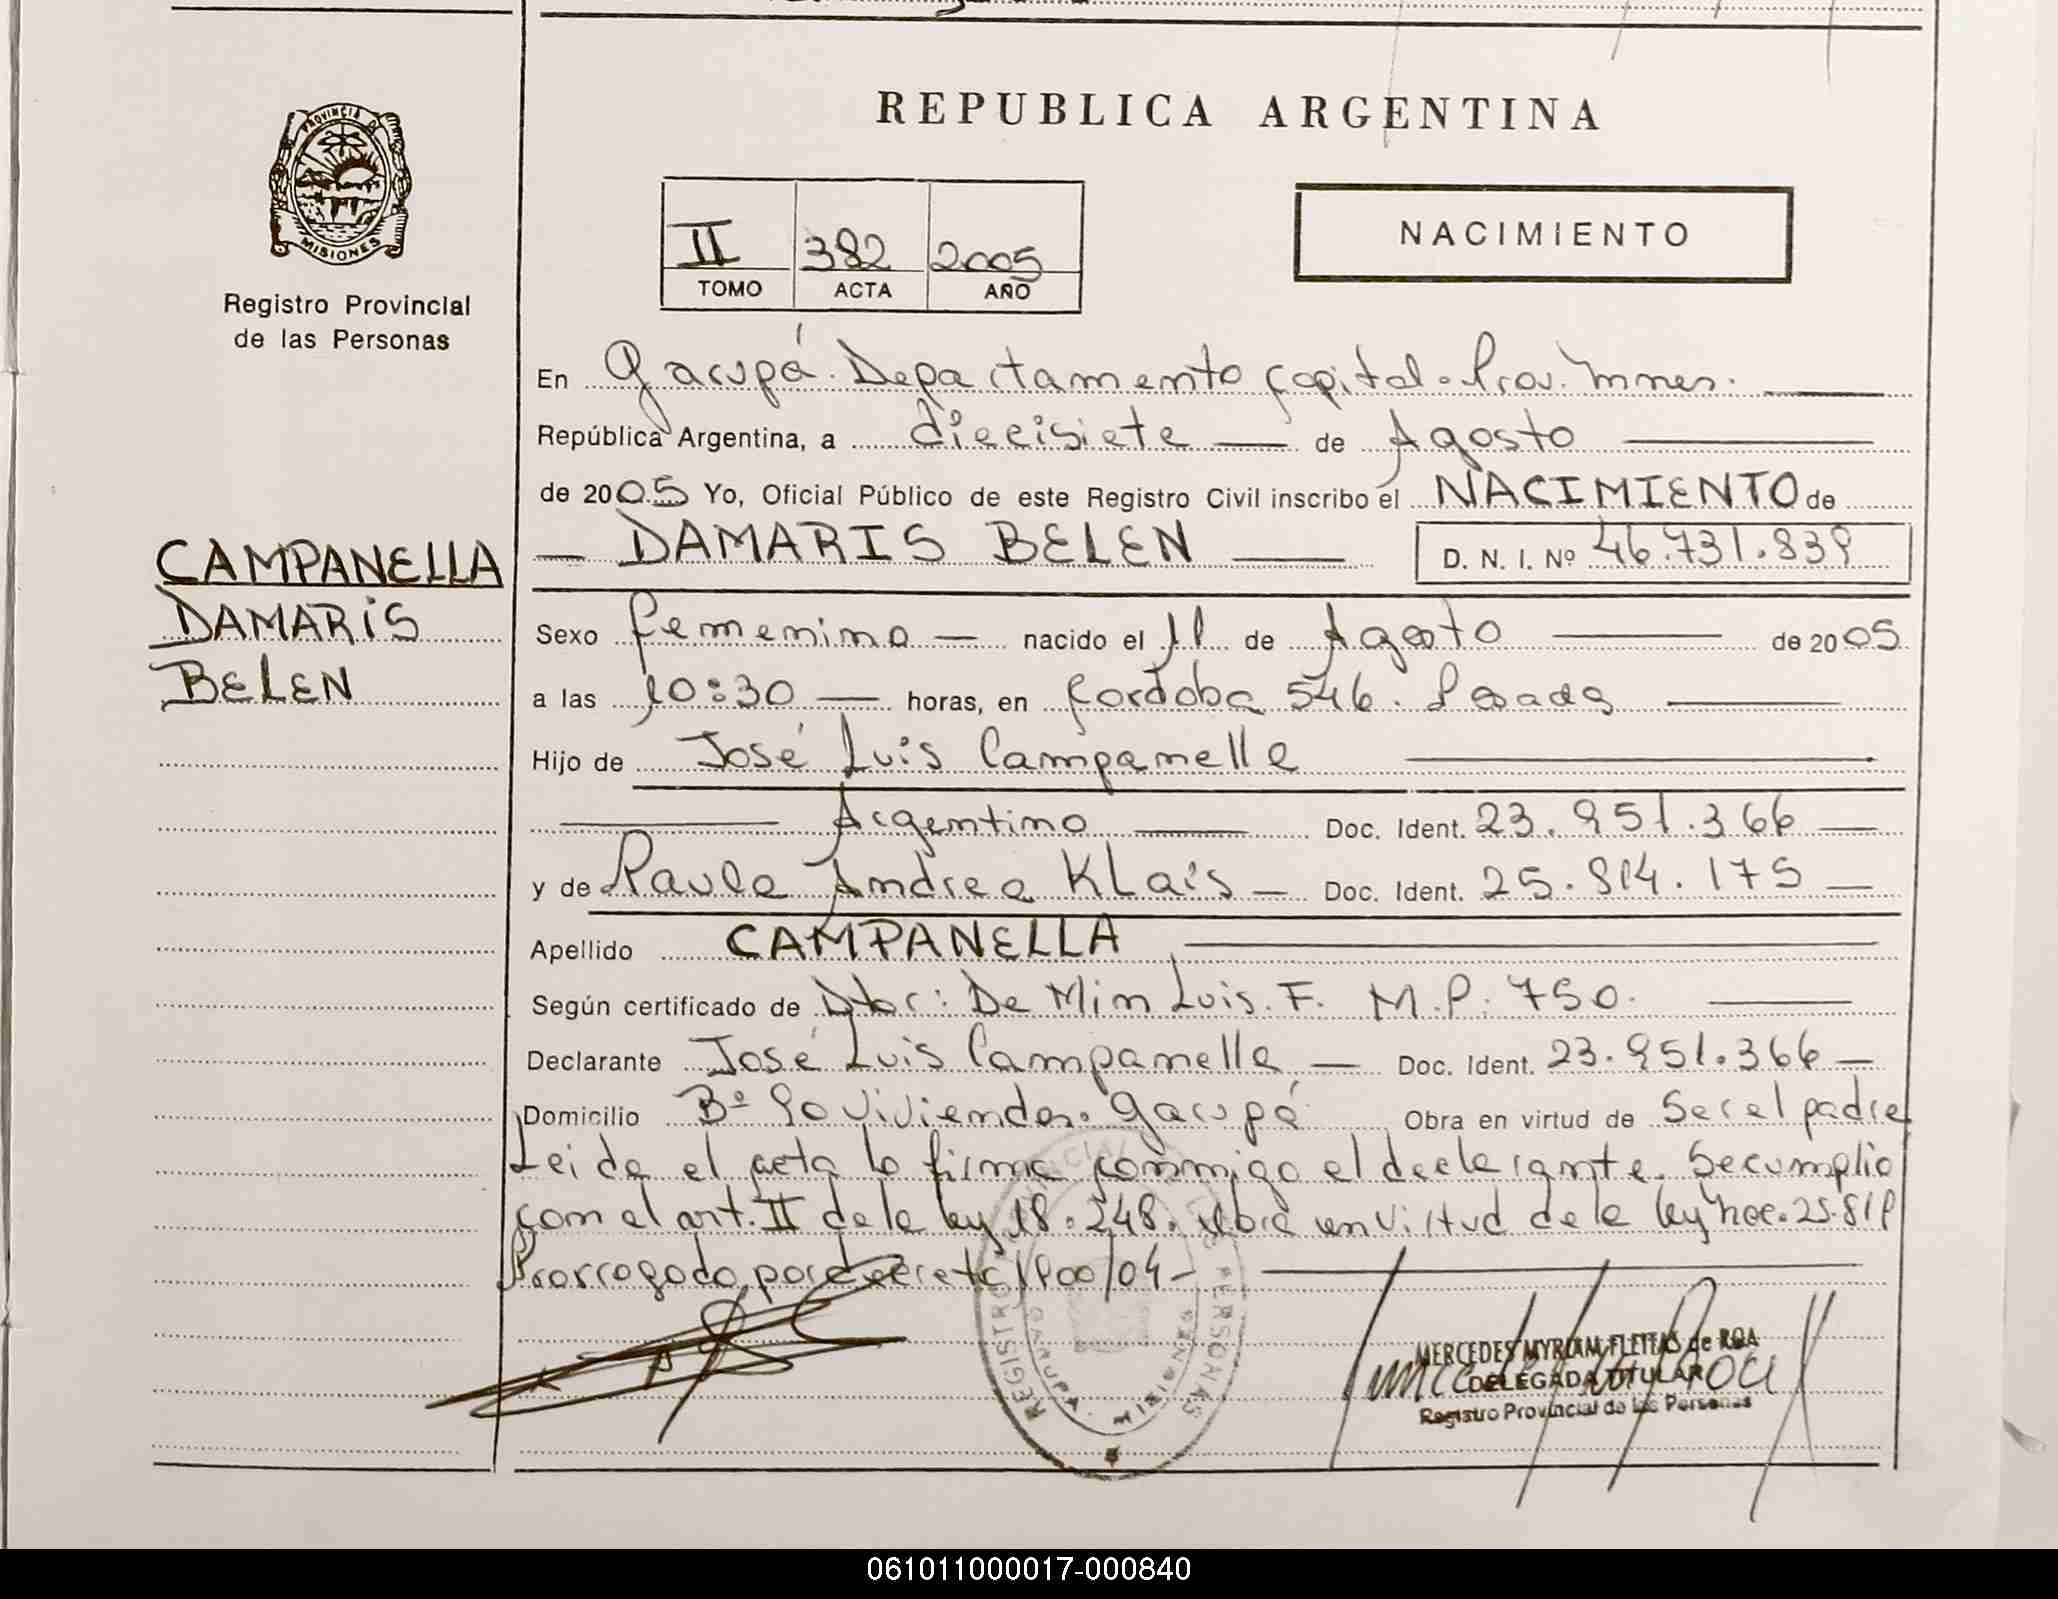 REPUBLICA ARGENTINA
PROVINCIA DE
MISIONES
Registro Provincial
de las Personas
II 382 2005
TOMO ACTA AÑO
NACIMIENTO
En Garupá. Departamento Capital. Prov. Mnes.
República Argentina, a diecisiete de Agosto
de 2005 Yo, Oficial Público de este Registro Civil inscribo el NACIMIENTO de
DAMARIS BELEN D. N. I. Nº 46.731.839
CAMPANELLA
DAMARIS
BELEN
Sexo femenino nacido el 11 de Agosto de 2005
a las 10:30 horas, en Cordoba 546. Posadas
Hijo de José Luis Campanella
Argentino Doc. Ident. 23.951.366
y de Paula Andrea Klais Doc. Ident. 25.814.175
Apellido CAMPANELLA
Según certificado de De Min Luis. F. M.P. 750.
Declarante José Luis Campanella Doc. Ident. 23.951.366
Domicilio Bº 90 Viviendas. Garupá Obra en virtud de Ser el padre
Leida el acta la firma conmigo el declarante. Se cumplio
con el art. II de la ley 18.248. Obra en virtud de la ley 25.819
Prorrogado por decreto 1900/04-
REGISTRO PROVINCIAL DE LAS PERSONAS
GARUPA
MISIONES
MERCEDES MYRIAM FLEITAS de ROA
DELEGADA TITULAR
Registro Provincial de las Personas
061011000017-000840